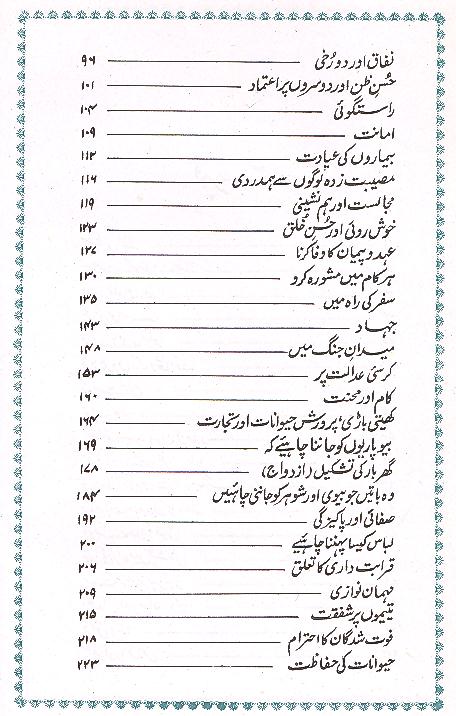 نفاق اور دورُخی ۹۶
حُسنِ ظن اور دوسروں پر اعتماد ۱۰۱
راستگوئی ۱۰۴
امانت ۱۰۹
بیماروں کی عیادت ۱۱۲
مصیبت زدہ لوگوں سے ہمدردی ۱۱۶
مجالست اور ہم نشینی ۱۱۹
خوش روئی اور حُسنِ خلق ۱۲۳
عہد و پیمان کا وفا کرنا ۱۲۷
ہر کام میں مشورہ کرو ۱۳۰
سفر کی راہ میں ۱۳۵
جہاد ۱۴۳
میدانِ جنگ میں ۱۴۸
کرسئ عدالت پر ۱۵۳
کام اور محنت ۱۶۰
کھیتی باڑی، پرورش حیوانات اور تجارت ۱۶۴
بیوپاریوں کو جاننا چاہیئے کہ ۱۶۹
گھر بار کی تشکیل (ازدواج) ۱۷۸
وہ باتیں جو بیوی اور شوہر کو جاننی چاہئیں ۱۸۴
صفائی اور پاکیزگی ۱۹۲
لباس کیسا پہننا چاہیئے ۲۰۰
قرابت داری کا تعلق ۲۰۶
مہمان نوازی ۲۰۹
یتیموں پر شفقت ۲۱۵
فوت شدگان کا احترام ۲۱۸
حیوانات کی حفاظت ۲۲۳